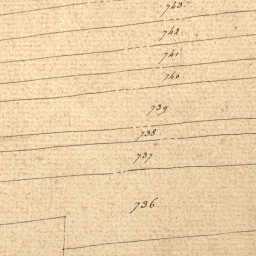 743
742
741
740
739
738
737
736